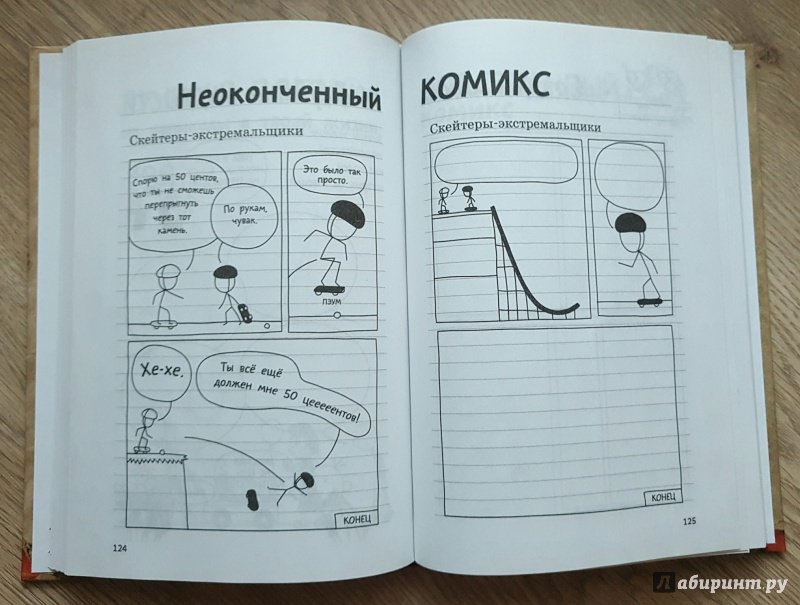 Неоконченный
Скейтеры-экстремальщики
Спорю на 50 центов,
что ты не сможешь
перепрыгнуть
через тот
камень.
По рукам,
чувак.
Это было так
просто.
ПЭУМ
Хе-хе.
Ты всё ещё
должен мне 50 цеееееентов!
КОНЕЦ
124
КОМИКС
Скейтеры-экстремальщики
КОНЕЦ
125
Лабиринт.ру